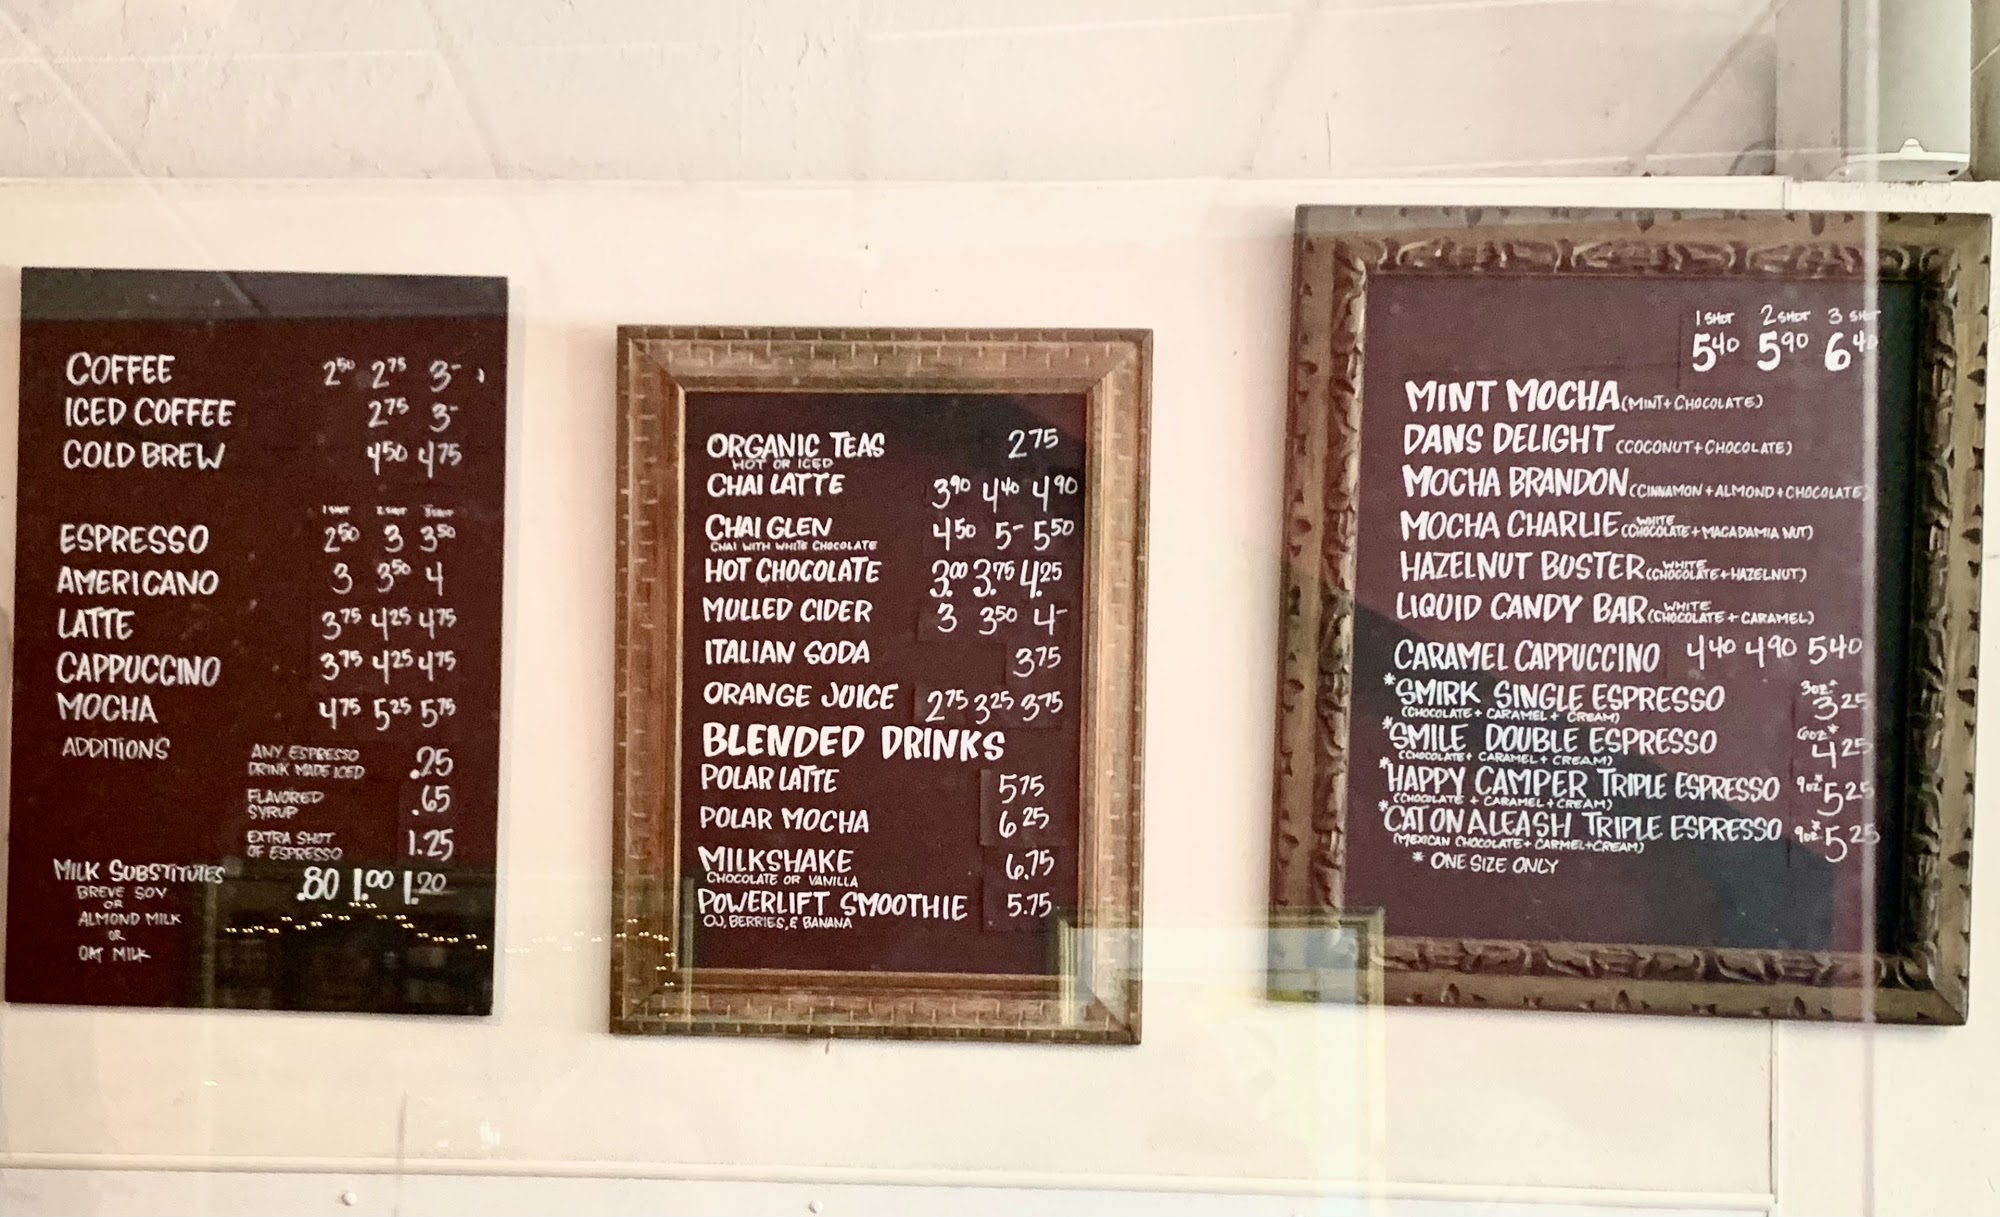 COFFEE 2⁵⁰ 2⁷⁵ 3-
ICED COFFEE 2⁷⁵ 3-
COLD BREW 4⁵⁰ 4⁷⁵
1 SHOT 2 SHOT 3 SHOT
ESPRESSO 2⁵⁰ 3 3⁵⁰
AMERICANO 3 3⁵⁰ 4
LATTE 3⁷⁵ 4²⁵ 4⁷⁵
CAPPUCCINO 3⁷⁵ 4²⁵ 4⁷⁵
MOCHA 4⁷⁵ 5²⁵ 5⁷⁵
ADDITIONS
ANY ESPRESSO
DRINK MADE ICED .25
FLAVORED
SYRUP .65
EXTRA SHOT
OF ESPRESSO 1.25
MILK SUBSTITUTES .80 1.⁰⁰ 1.²⁰
BREVE SOY
OR
ALMOND MILK
OR
OAT MILK
ORGANIC TEAS 2⁷⁵
HOT OR ICED
CHAI LATTE 3⁹⁰ 4⁴⁰ 4⁹⁰
CHAI GLEN 4⁵⁰ 5- 5⁵⁰
CHAI WITH WHITE CHOCOLATE
HOT CHOCOLATE 3.⁰⁰ 3.⁷⁵ 4.²⁵
MULLED CIDER 3 3⁵⁰ 4-
ITALIAN SODA 3⁷⁵
ORANGE JUICE 2⁷⁵ 3²⁵ 3⁷⁵
BLENDED DRINKS
POLAR LATTE 5⁷⁵
POLAR MOCHA 6²⁵
MILKSHAKE 6.75
CHOCOLATE OR VANILLA
POWERLIFT SMOOTHIE 5.75
OJ, BERRIES, & BANANA
1 SHOT 2 SHOT 3 SHOT
5⁴⁰ 5⁹⁰ 6⁴⁰
MINT MOCHA (MINT + CHOCOLATE)
DANS DELIGHT (COCONUT + CHOCOLATE)
MOCHA BRANDON (CINNAMON + ALMOND + CHOCOLATE)
MOCHA CHARLIE (WHITE CHOCOLATE + MACADAMIA NUT)
HAZELNUT BUSTER (WHITE CHOCOLATE + HAZELNUT)
LIQUID CANDY BAR (WHITE CHOCOLATE + CARAMEL)
CARAMEL CAPPUCCINO 4⁴⁰ 4⁹⁰ 5⁴⁰
*SMIRK SINGLE ESPRESSO 3oz* 3²⁵
(CHOCOLATE + CARAMEL + CREAM)
*SMILE DOUBLE ESPRESSO 6oz* 4²⁵
(CHOCOLATE + CARAMEL + CREAM)
*HAPPY CAMPER TRIPLE ESPRESSO 9oz* 5²⁵
(CHOCOLATE + CARAMEL + CREAM)
*CAT ON A LEASH TRIPLE ESPRESSO 9oz* 5²⁵
(MEXICAN CHOCOLATE + CARMEL + CREAM)
* ONE SIZE ONLY